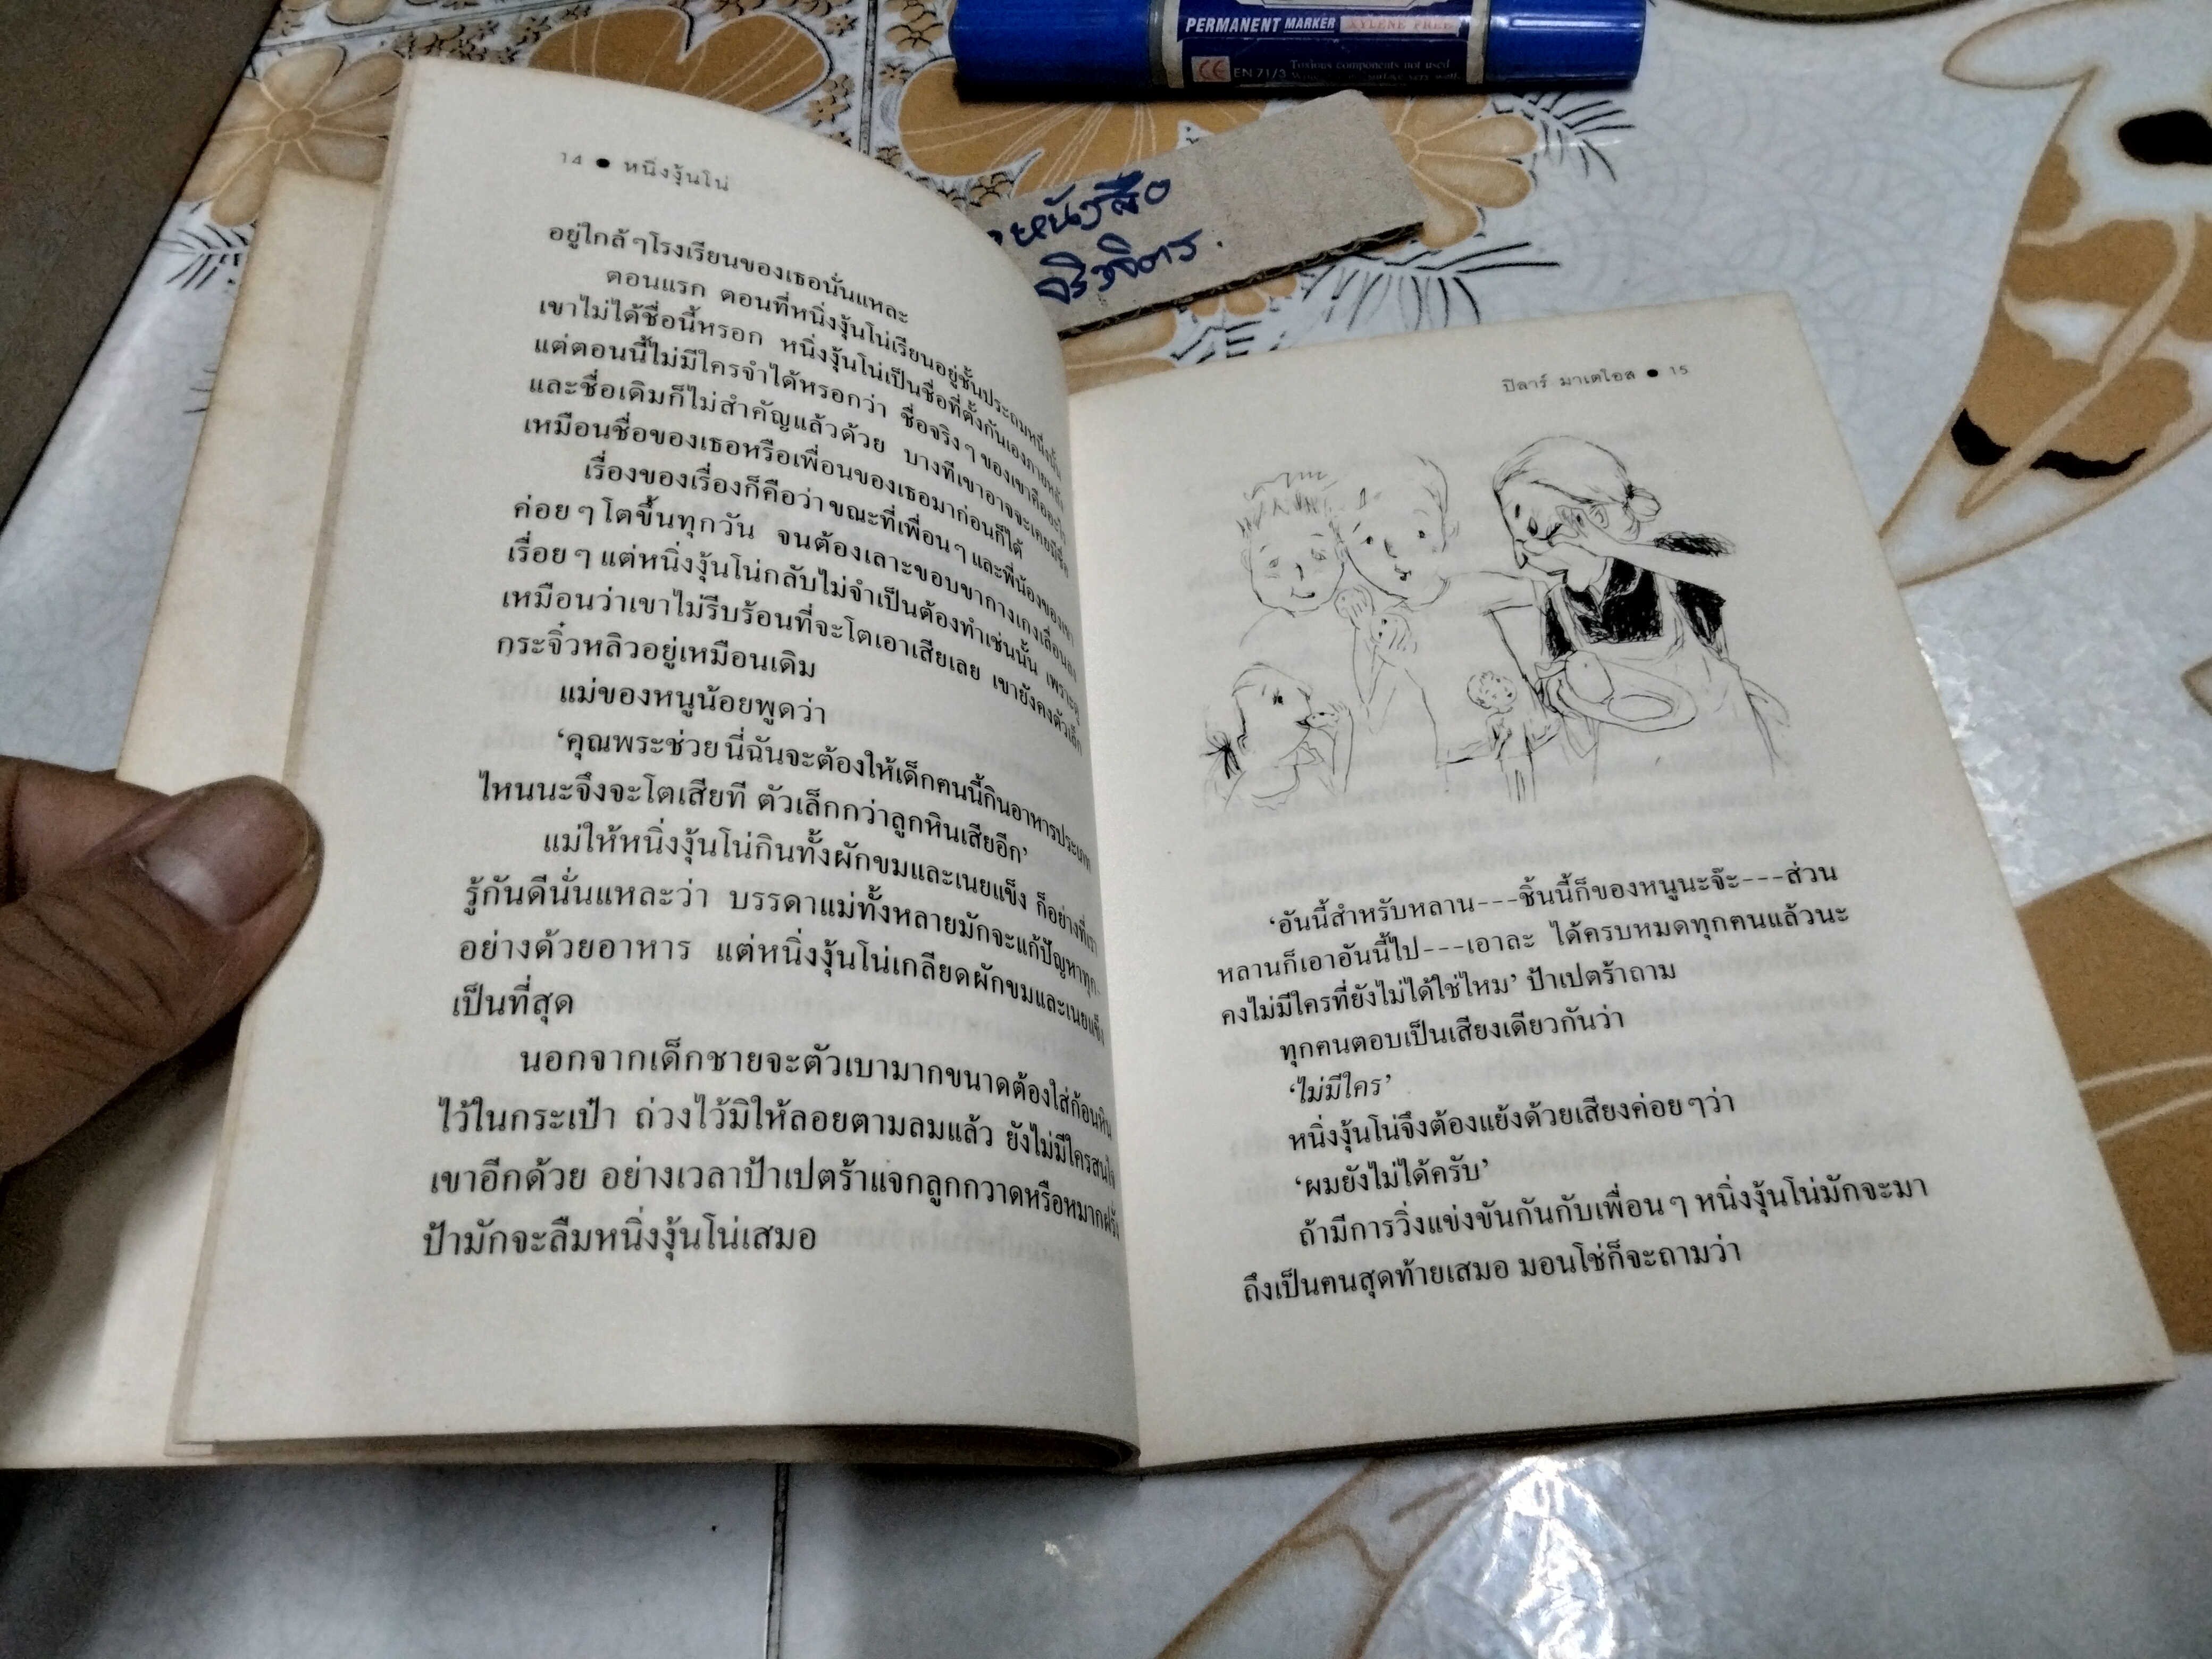 PERMANENT MARKER XYLENE FREE
CE EN 71/3 Toxious components not used
หนังสือ
14 ● หนึ่งงุ้นโน่
อยู่ใกล้ๆโรงเรียนของเธอนั่นแหละ
ตอนแรก ตอนที่หนึ่งงุ้นโน่เรียนอยู่ชั้นประถมหนึ่งนั้น
เขาไม่ได้ชื่อนี้หรอก หนึ่งงุ้นโน่เป็นชื่อที่ตั้งกันเองภายหลัง
แต่ตอนนี้ไม่มีใครจำได้หรอกว่า ชื่อจริงๆ ของเขาคืออะไร
และชื่อเดิมก็ไม่สำคัญแล้วด้วย บางทีเขาอาจจะเคยมีชื่อ
เหมือนชื่อของเธอหรือเพื่อนของเธอมาก่อนก็ได้
เรื่องของเรื่องก็คือว่า ขณะที่เพื่อนๆ และพี่น้องของเขา
ค่อยๆ โตขึ้นทุกวัน จนต้องเลาะขอบขากางเกงเลื่อนลง
เรื่อยๆ แต่หนึ่งงุ้นโน่กลับไม่จำเป็นต้องทำเช่นนั้น เพราะดู
เหมือนว่าเขาไม่รีบร้อนที่จะโตเอาเสียเลย เขายังคงตัวเล็ก
กระจิ๋วหลิวอยู่เหมือนเดิม
แม่ของหนูน้อยพูดว่า
‘คุณพระช่วย นี่ฉันจะต้องให้เด็กคนนี้กินอาหารประเภท
ไหนนะจึงจะโตเสียที ตัวเล็กกว่าลูกหินเสียอีก’
แม่ให้หนึ่งงุ้นโน่กินทั้งผักขมและเนยแข็ง ก็อย่างที่เรา
รู้กันดีนั่นแหละว่า บรรดาแม่ทั้งหลายมักจะแก้ปัญหาทุก
อย่างด้วยอาหาร แต่หนึ่งงุ้นโน่เกลียดผักขมและเนยแข็ง
เป็นที่สุด
นอกจากเด็กชายจะตัวเบามากขนาดต้องใส่ก้อนหิน
ไว้ในกระเป๋า ถ่วงไว้มิให้ลอยตามลมแล้ว ยังไม่มีใครสนใจ
เขาอีกด้วย อย่างเวลาป้าเปตร้าแจกลูกกวาดหรือหมากฝรั่ง
ป้ามักจะลืมหนึ่งงุ้นโน่เสมอ
ปิลาร์ มาเตโอส ● 15
‘อันนี้สำหรับหลาน---ชิ้นนี้ก็ของหนูนะจ๊ะ---ส่วน
หลานก็เอาอันนี้ไป---เอาละ ได้ครบหมดทุกคนแล้วนะ
คงไม่มีใครที่ยังไม่ได้ใช่ไหม’ ป้าเปตร้าถาม
ทุกคนตอบเป็นเสียงเดียวกันว่า
‘ไม่มีใคร’
หนึ่งงุ้นโน่จึงต้องแย้งด้วยเสียงค่อยๆว่า
‘ผมยังไม่ได้ครับ’
ถ้ามีการวิ่งแข่งขันกันกับเพื่อนๆ หนึ่งงุ้นโน่มักจะมา
ถึงเป็นคนสุดท้ายเสมอ มอนโช่ก็จะถามว่า